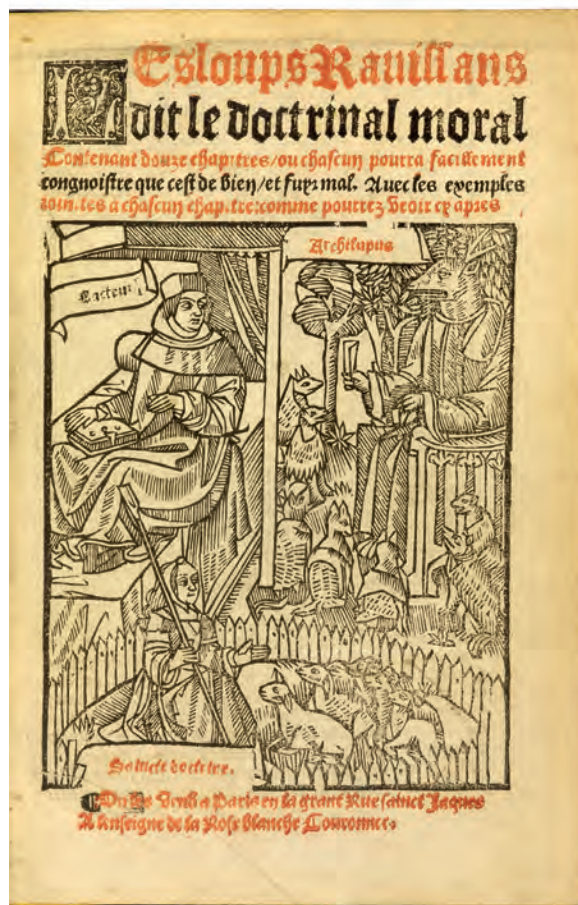 LEs loups Rauissans
dit le doctrinal moral
Contenant douze chapitres/ou chascun pourra facillement
congnoistre que cest de bien/et fuyr mal. Auec les exemples
ioin.tes a chascun chap.tre:comme pourrez veoir cy apres
Archilupus
Lacteur
Saincte doctrine.
On les vend a Paris en la grant Rue sainct Jaques
A lenseigne de la Rose blanche Couronnee.